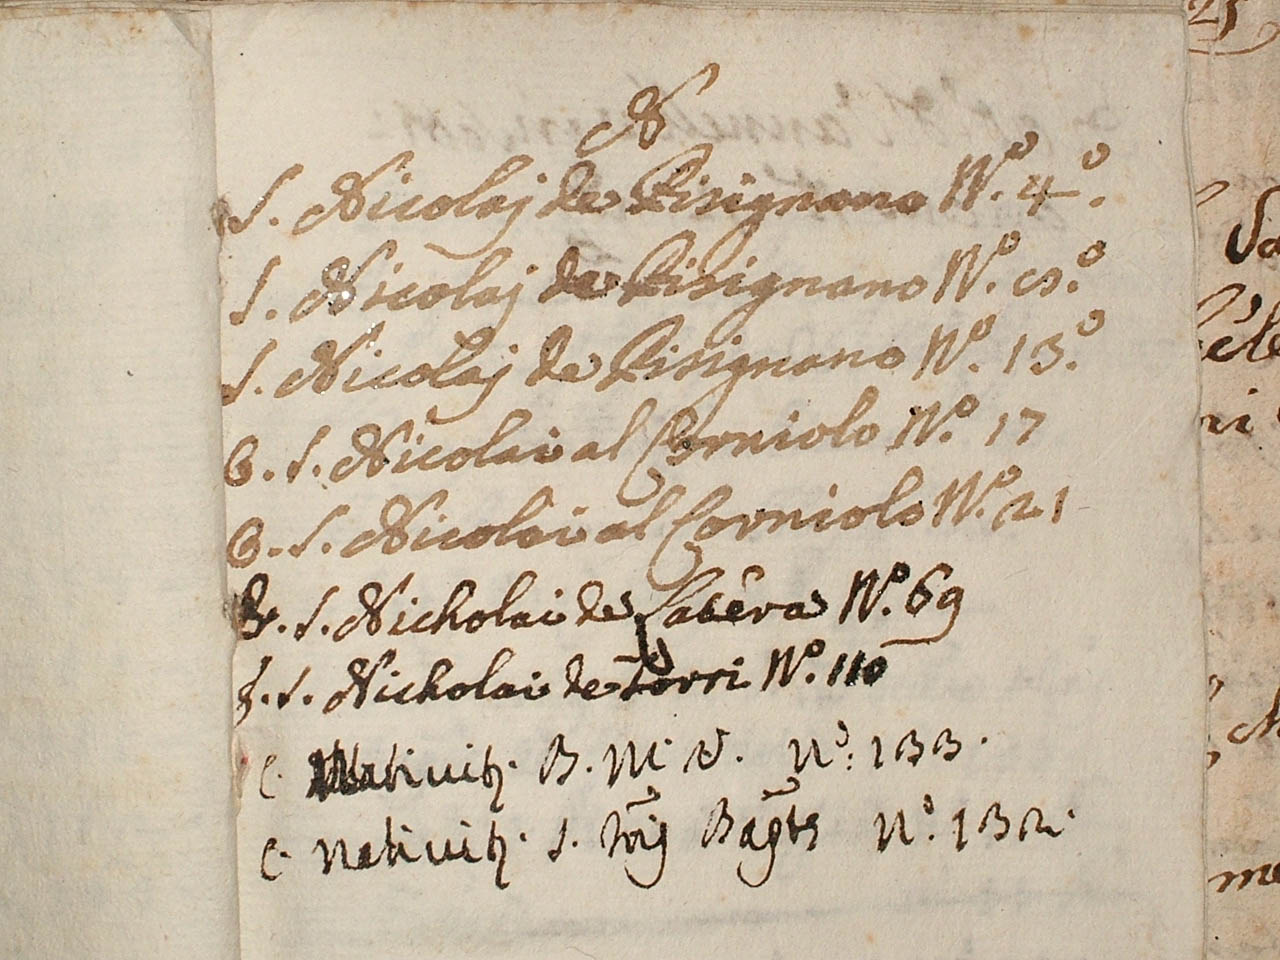 N
S. Nicolaj de Pisignano N.º 4º.
S. Nicolaj de Pisignano N.º 9.º
S. Nicolaj de Pisignano Nº. 13.º
B. S. Nicolai al Corniolo N.º 17
B. S. Nicolai al Corniolo N.º 21
S. Nicholai de N.º 69
S. Nicholai de Torri N.º 110
C. Nativit. B. M. V. Nº: 133.
C. Nativit. S. Nº. 132.
25